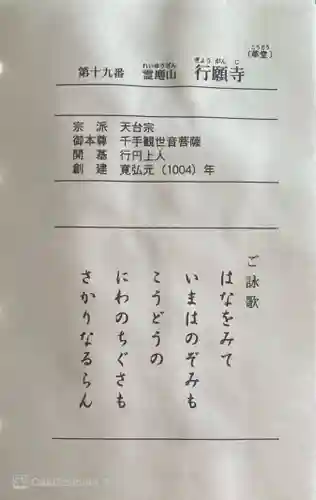 (革堂)
こうどう
第十九番 霊麀山 行願寺
れいゆうざん ぎょうがんじ
宗派 天台宗
御本尊 千手観世音菩薩
開基 行円上人
創建 寛弘元（1004）年
ご詠歌
はなをみて
いまはのぞみも
こうどうの
にわのちぐさも
さかりなるらん